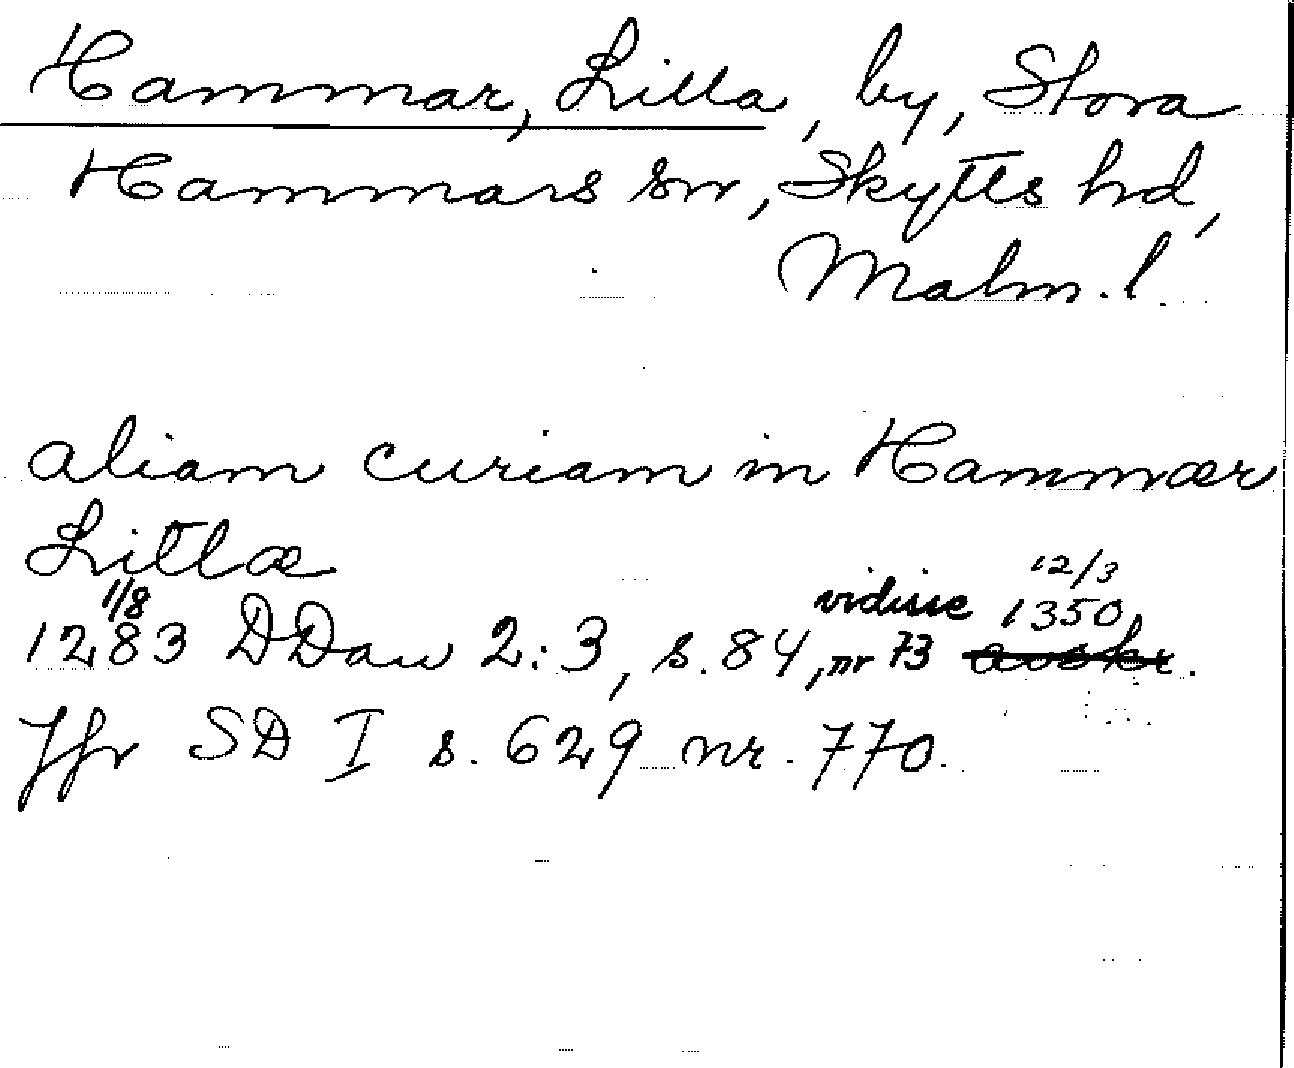 Hammar, Lilla, by, Stora
Hammars sn, Skytts hd,
Malm. l.
aliam curiam in Hammær
Litlæ
1/8 vidisse 12/3 1350
1283 DDan 2:3, s. 84, nr 73 avskr.
Jfr SD I s. 629 nr. 770.